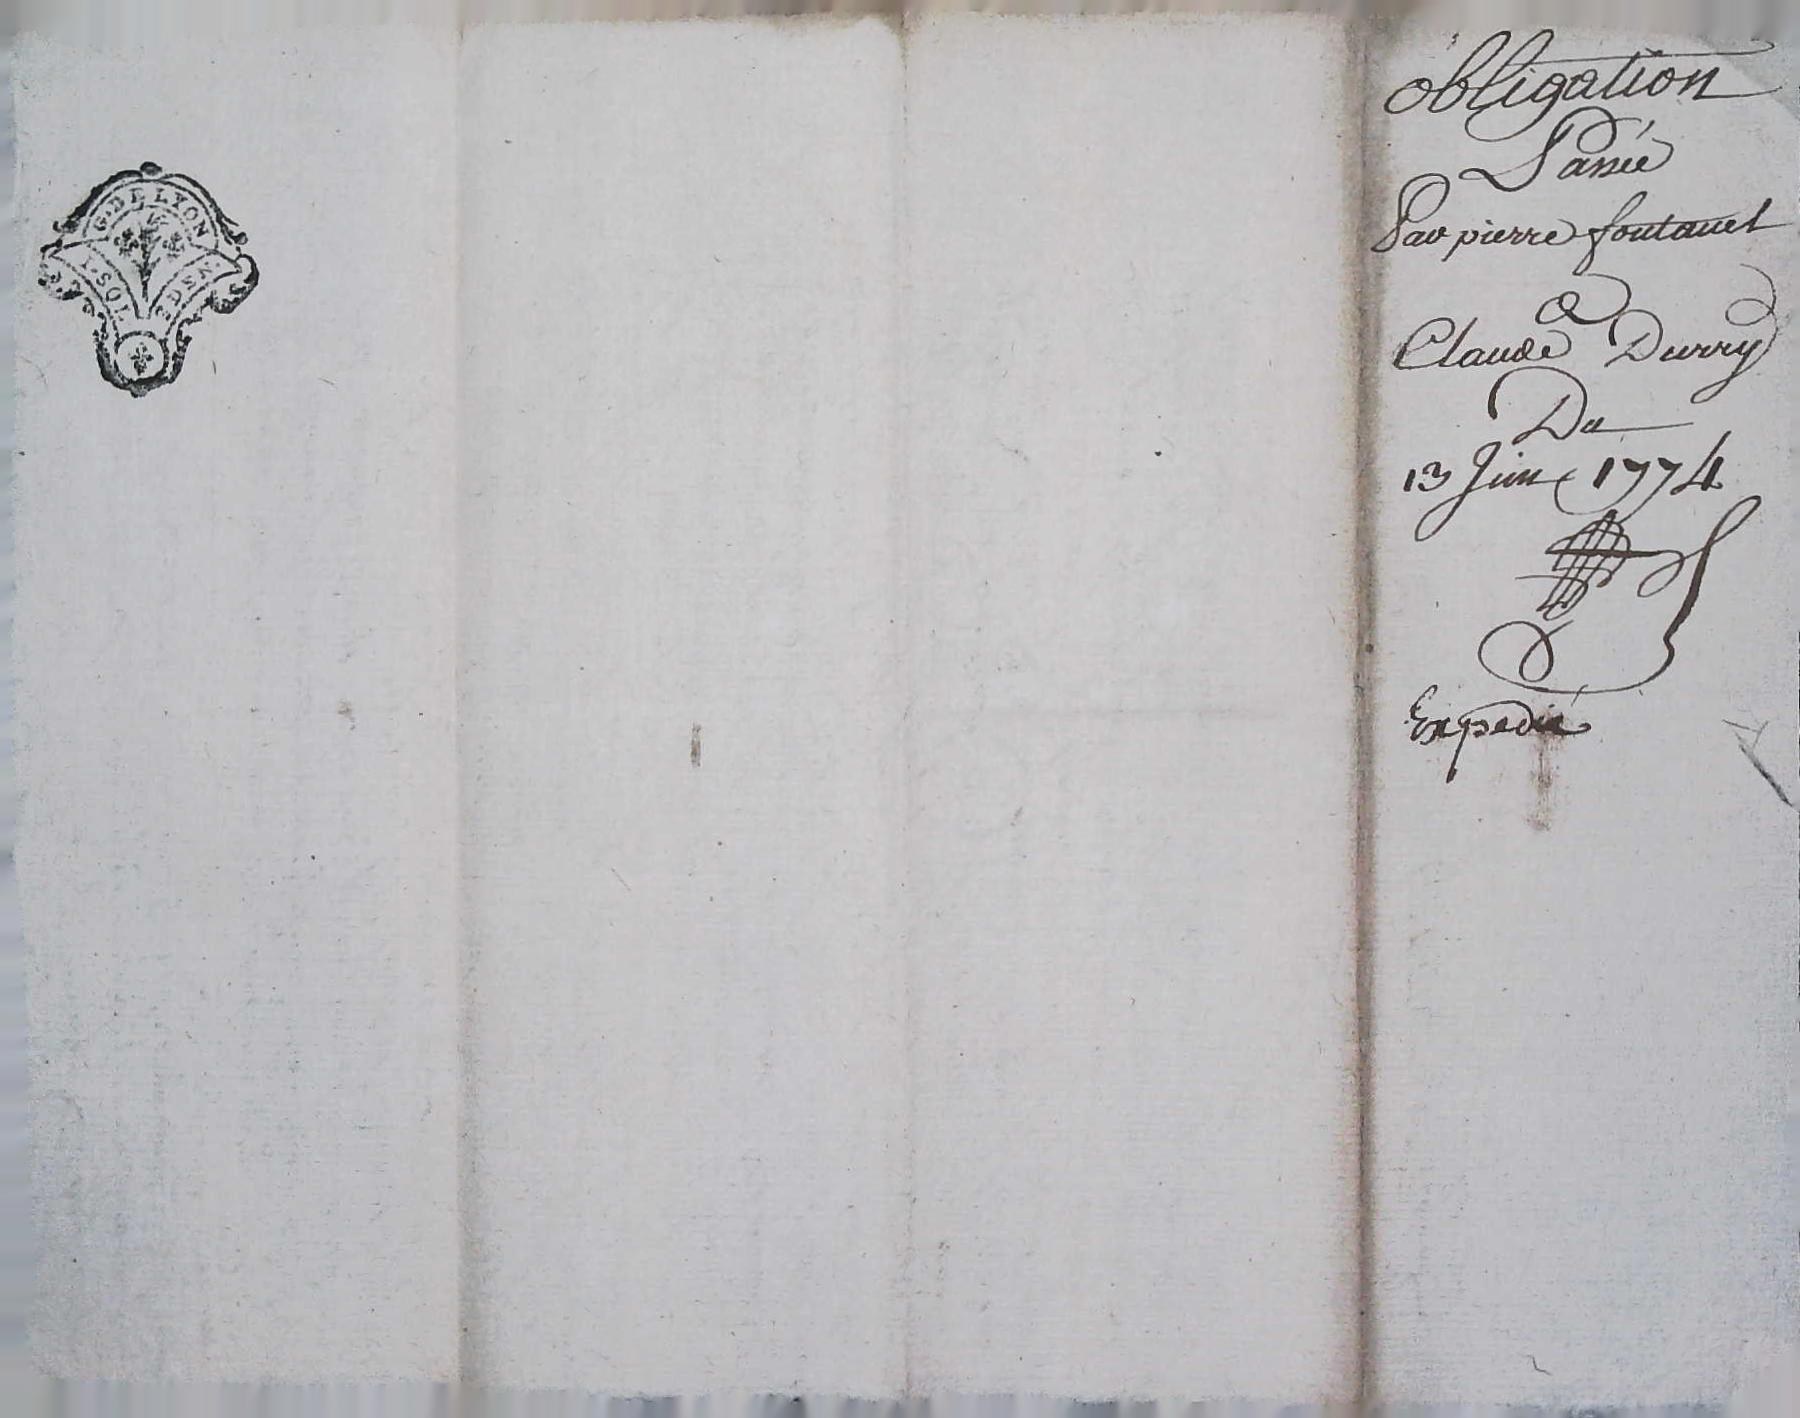 G. DE LYON
1. SOL
2 DEN.
obligation
Passée
Par pierre fontanel
a
Claude Durry
Du
13 Juin 1774
Expedié